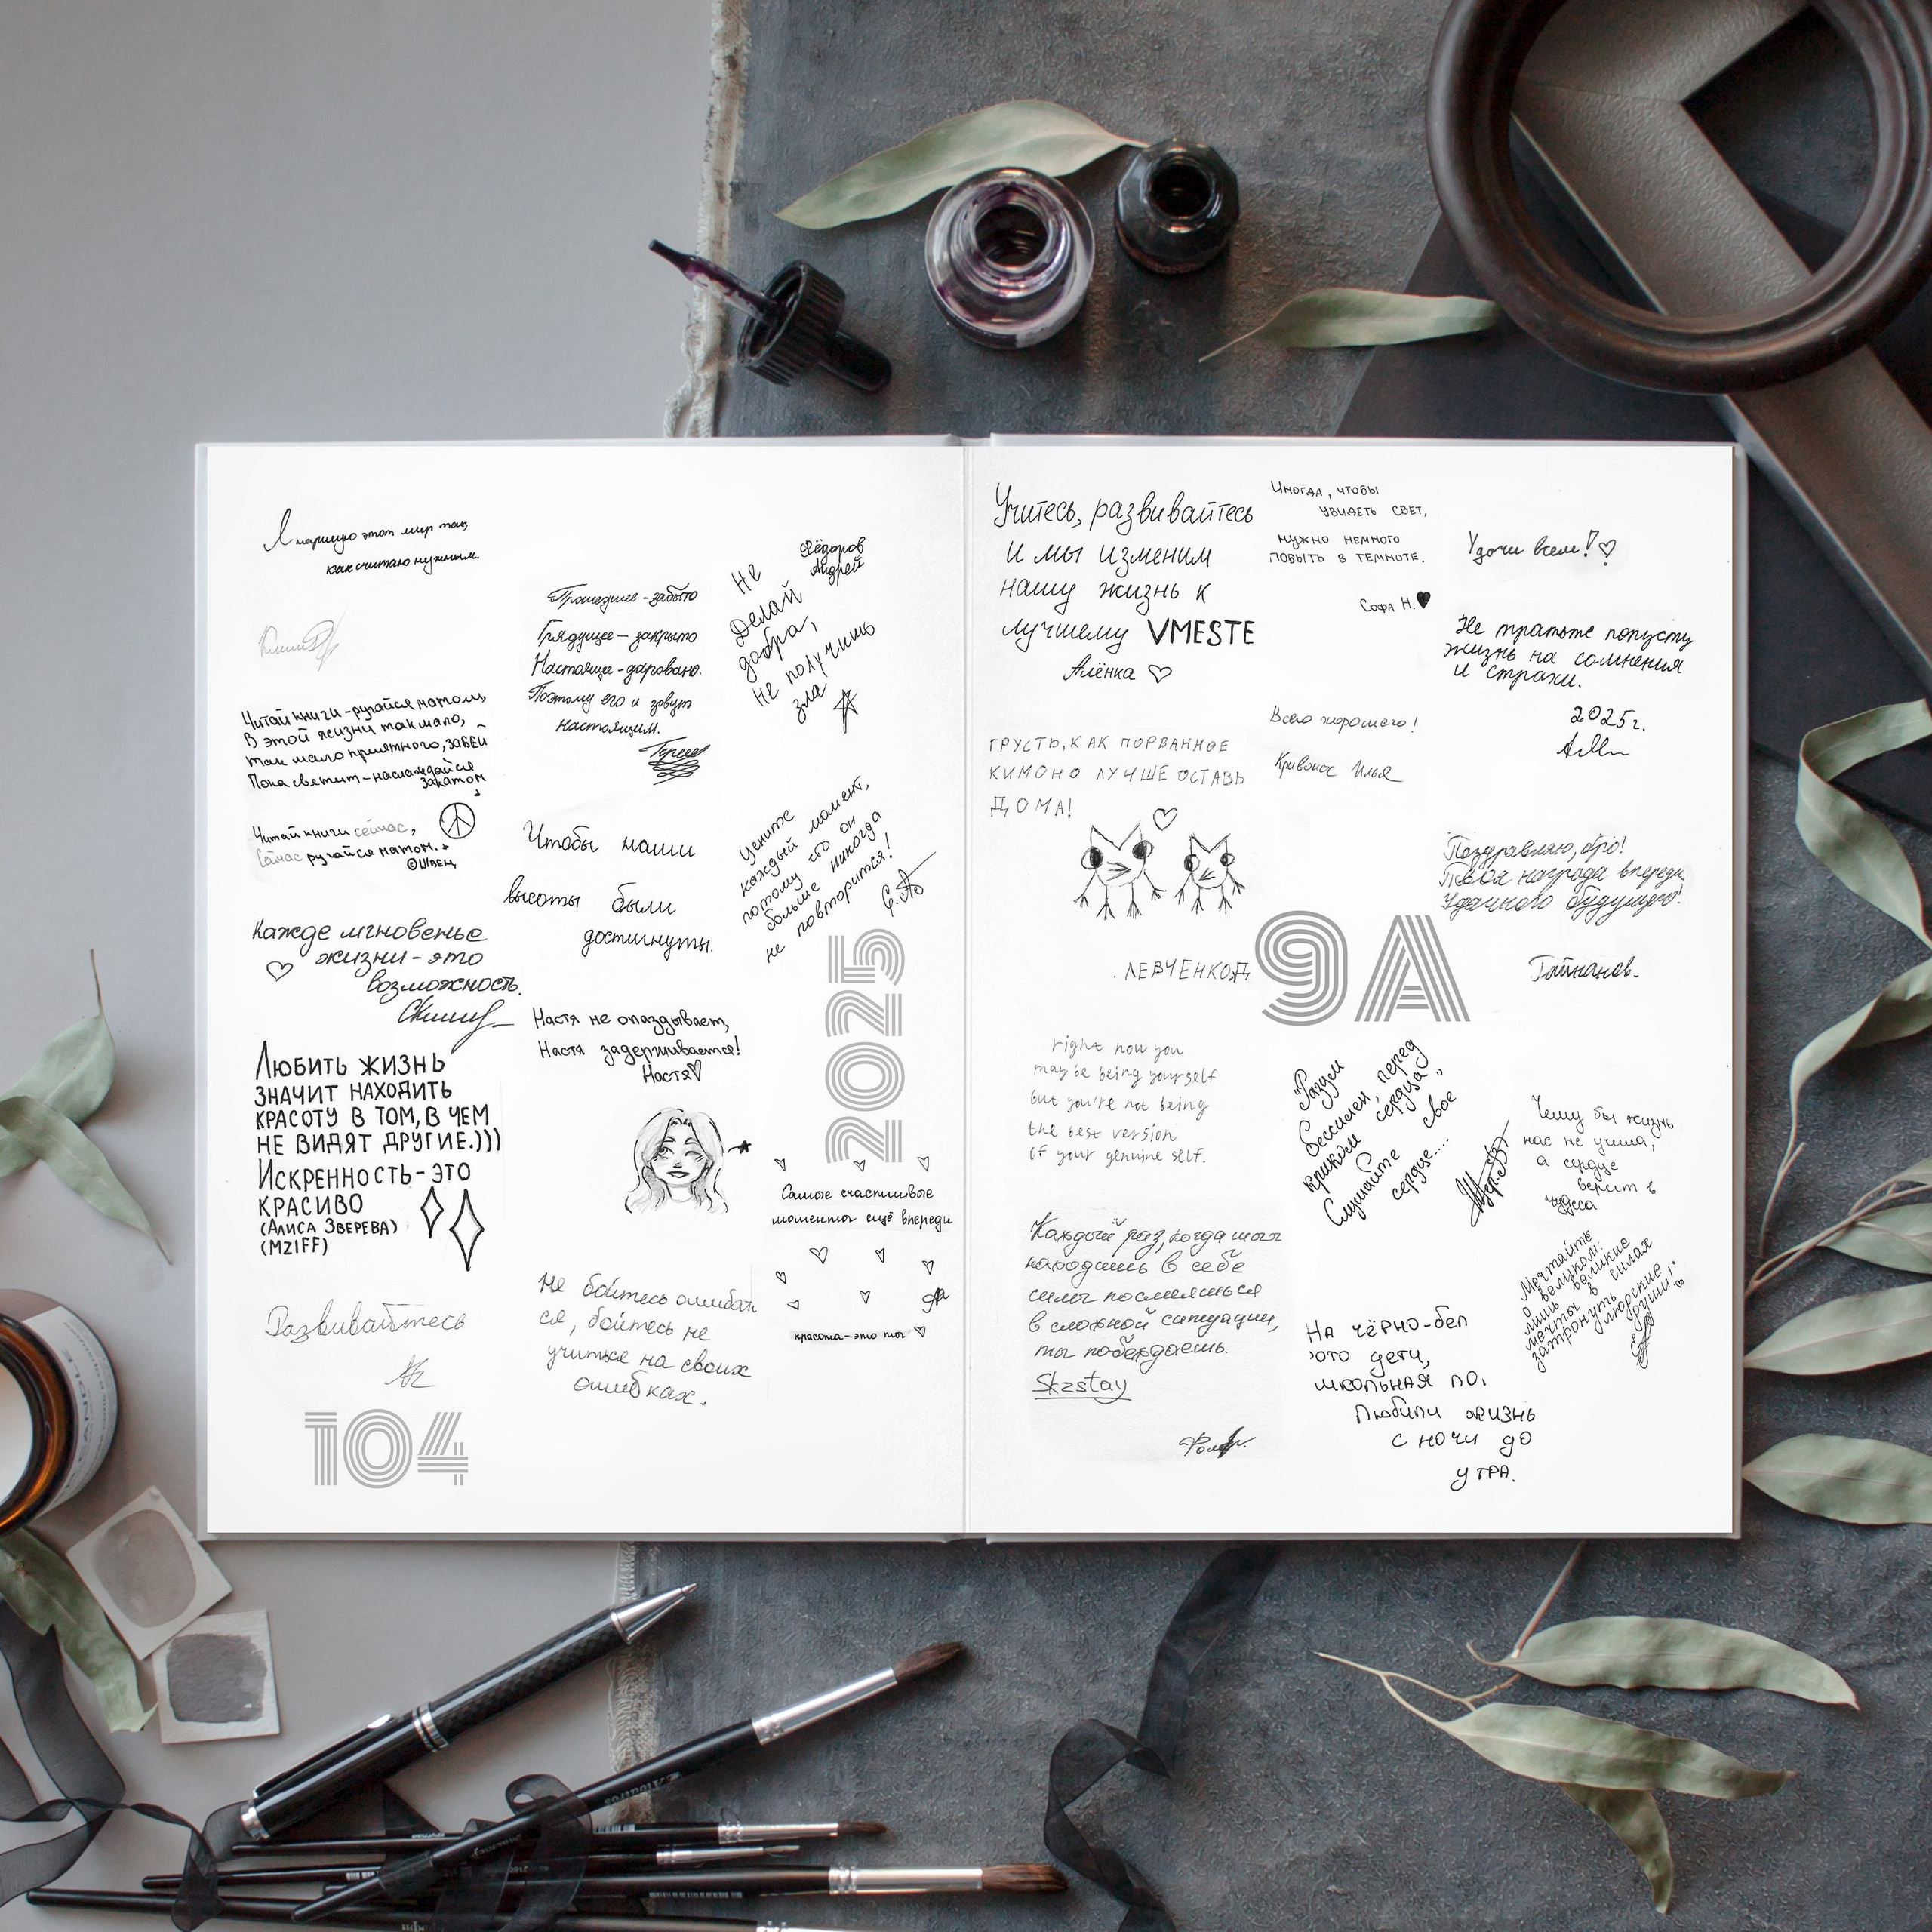 Я нарисую этот мир так,
как считаю нужным.
Читай книги-ругайся матом,
В этой жизни так мало,
так мало приятного, забей
Пока светит-наслаждайся
закатом
Читай книги сейчас,
Сейчас ругайся матом.
©Швец
Кажде мгновенье
жизни-это
возможность.
Любить жизнь
значит находить
красоту в том, в чем
не видят другие.)))
Искренность-это
красиво
(Алиса Зверева)
(MZIFF)
Развивайтесь
104
Прошедшее-забыто
Грядущее-закрыто
Настоящее-даровано.
Поэтому его и зовут
настоящим.
Чтобы наши
высоты были
достигнуты.
Настя не опаздывает,
Настя задерживается!
Настя♡
Не бойтесь ошибать
ся, бойтесь не
учиться на своих
ошибках.
Фёдоров
Андрей
Не
Делай
добра,
не получишь
зла
Цените
каждый момент,
потому что он
больше никогда
не повторится!
2025
Самые счастливые
моменты ещё впереди
красота-это ты ♡
Учитесь, развивайтесь
и мы изменим
нашу жизнь к
лучшему VMESTE
Алёнка ♡
Иногда, чтобы
увидеть свет,
нужно немного
побыть в темноте.
Софа Н.♥
Удачи всем!♡
Не тратьте попусту
жизнь на сомнения
и страхи.
2025г.
Всего хорошего!
Кривонос Илья
Грусть, как порванное
кимоно лучше оставь
дома!
Левченко Д
9А
Поздравляю, бро!
Твоя награда впереди.
Удачного будущего!
right now you
may be being yourself
but you're not being
the best version
of your genuine self.
"Разум
бессилен перед
криком сердца"
Слушайте своё
сердце...
Чему бы жизнь
нас не учила,
а сердце
верит в
чудеса
Каждый раз, когда ты
находишь в себе
силы посмеяться
в сложной ситуации,
ты побеждаешь.
Skzstay
На чёрно-бел
это дети,
школьная по.
Любили жизнь
с ночи до
утра.
Мечтайте
о великом:
лишь великие
мечты в силах
затронуть людские
души!"